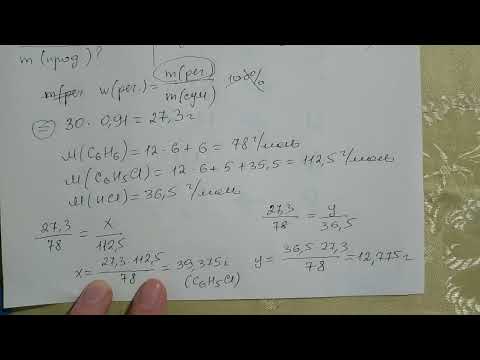 m(прод)?
w(рег.) = m(рег.) / m(сум) · 100%
= 30 · 0,91 = 27,3 г
M(C6H6) = 12 · 6 + 6 = 78 г/моль
M(C6H5Cl) = 12 · 6 + 5 + 35,5 = 112,5 г/моль
M(HCl) = 36,5 г/моль
27,3/78 = x/112,5
x = 27,3 · 112,5/78 = 39,375 г
(C6H5Cl)
27,3/78 = y/36,5
y = 36,5 · 27,3/78 = 12,775 г